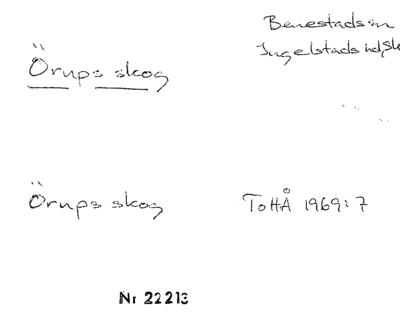 Benestads sn
Ingelstads hd, Sk
Örups skog
Örups skog ToHÅ 1969:7
Nr 22213